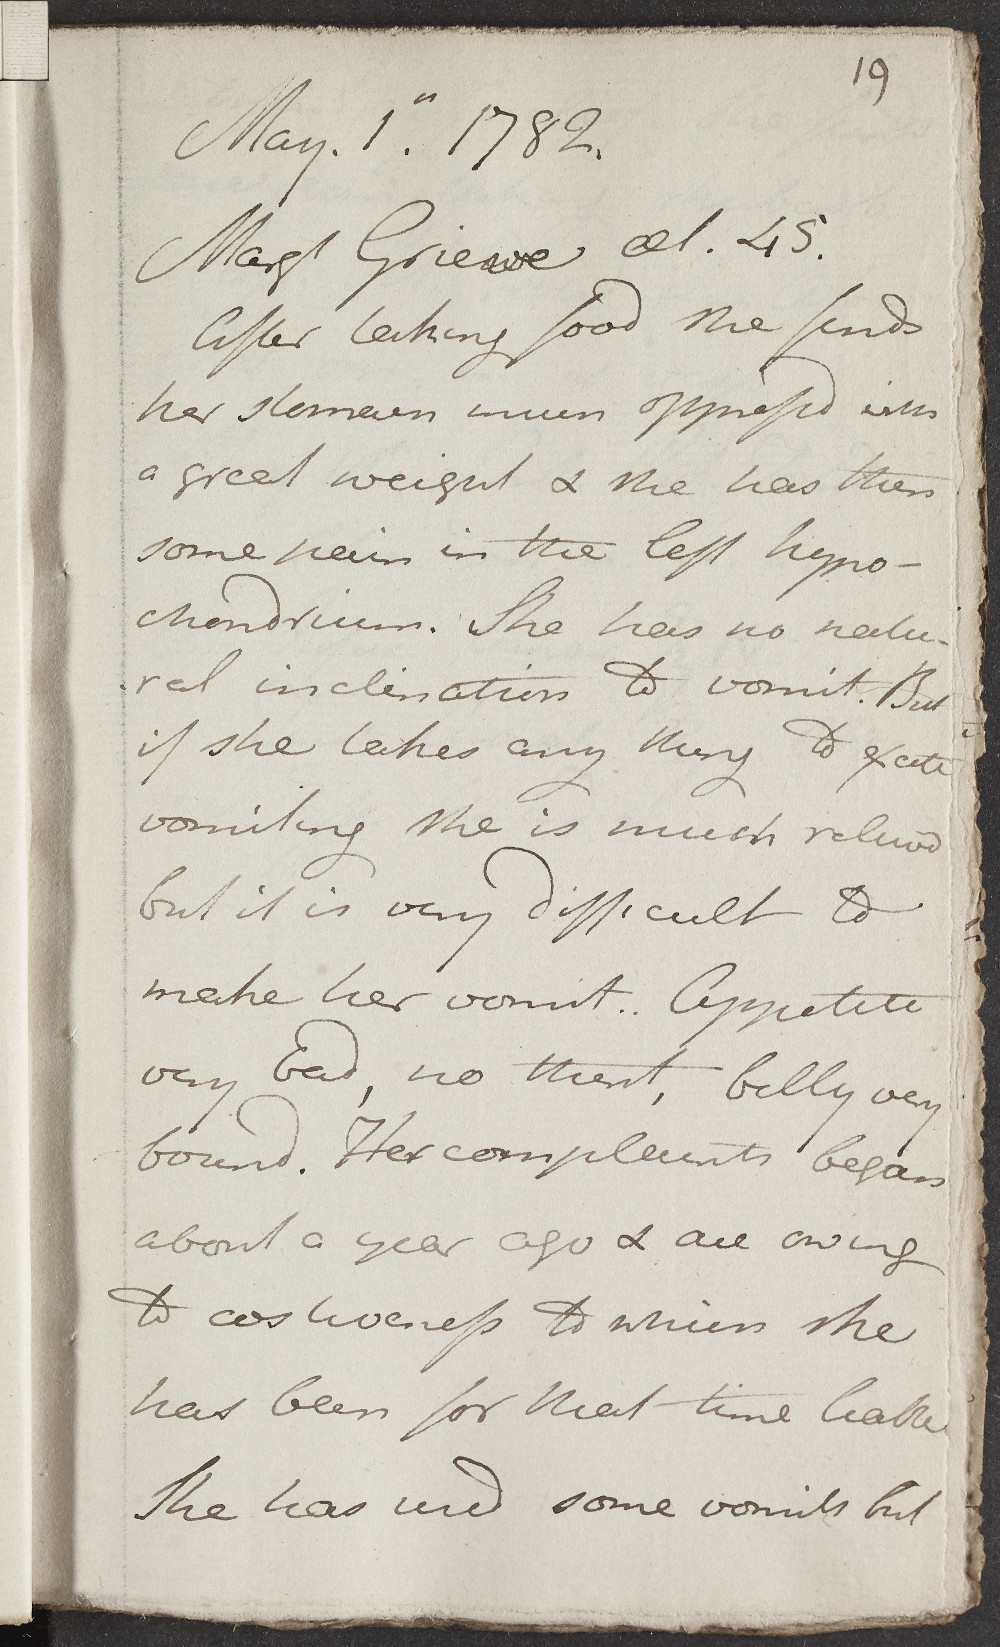 19
May. 1st. 1782.
Margt Grieve æt. 45.
After taking food she finds
her stomach much oppressd with
a great weight & she has then
some pain in the left hypo-
chondrium. She has no natu-
ral inclination to vomit. But
if she takes any thing to excite
vomiting she is much relievd
but it is very difficult to
make her vomit.. Appetite
very bad, no thirst, belly very
bound. Her complaints began
about a year ago & are owing
to costiveness to which she
has been for that time liable
She has used some vomits but